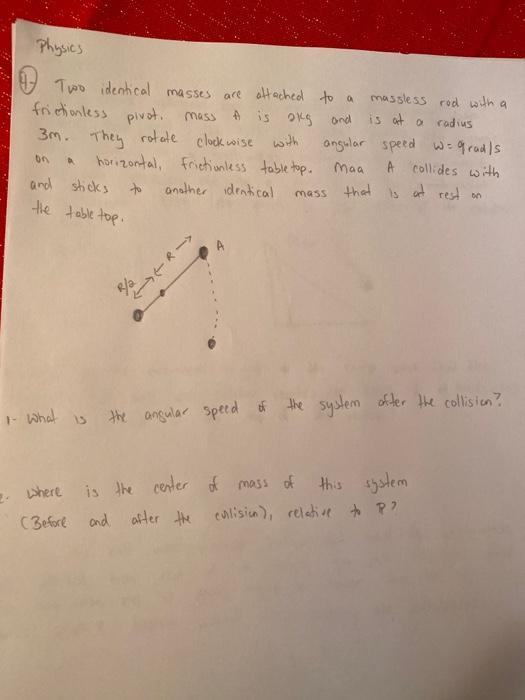 Physics
4- Two identical masses are attached to a massless rod with a
frictionless pivot. mass A is 2kg and is at a radius
3m. They rotate clockwise with angular speed w=9rad/s
on a horizontal, frictionless tabletop. Maa A collides with
and sticks to another identical mass that is at rest on
the tabletop.
A
R
R/2
1- What is the angular speed of the system after the collision?
2- Where is the center of mass of this system
(Before and after the collision), relative to P?